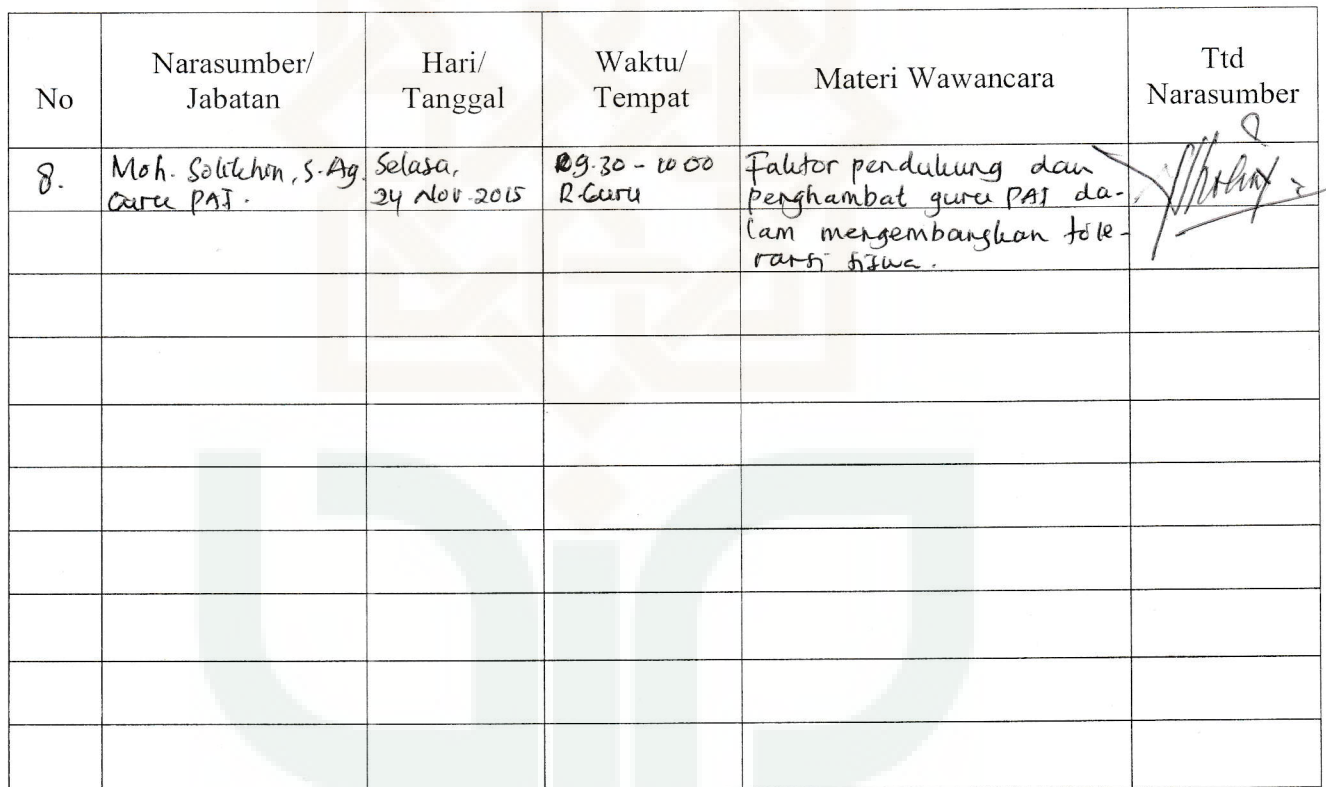 No
Narasumber/
Jabatan
Hari/
Tanggal
Waktu/
Tempat
Materi Wawancara
Ttd
Narasumber
8.
Moh. Solikhin, S.Ag.
Guru PAI.
Selasa,
24 Nov 2015
09.30 - 10 00
R.Guru
Faktor pendukung dan
penghambat guru PAI da-
lam mengembangkan tole-
ransi siswa.